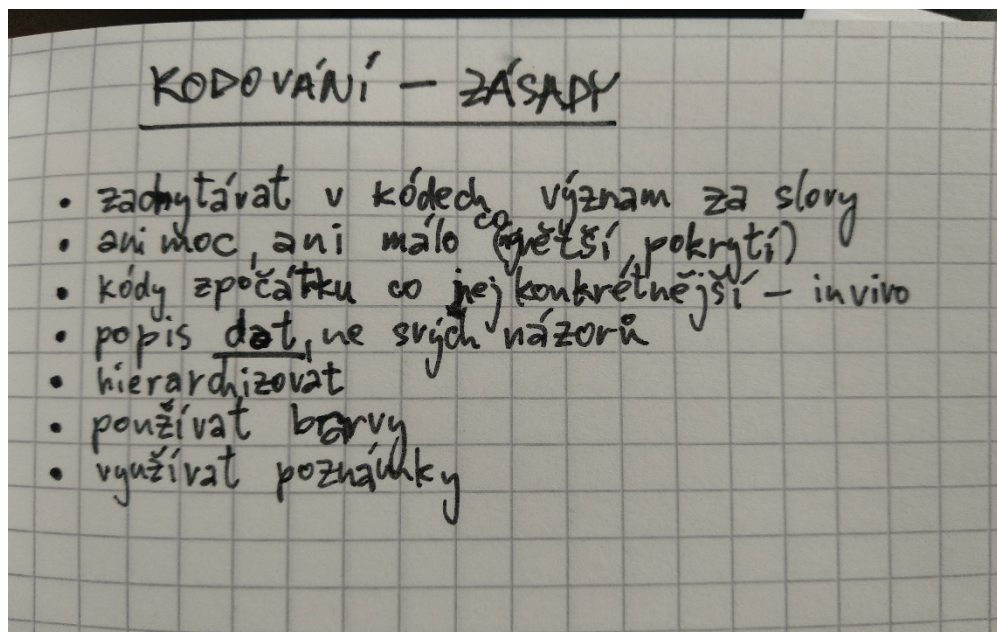 KODOVÁNÍ – ZÁSADY
• zachytávat v kódech význam za slovy
• ani moc, ani málo (co pokrytí)
• kódy zpočátku co nejkonkrétnější – invivo
• popis dat, ne svých názorů
• hierarchizovat
• používat barvy
• využívat poznámky